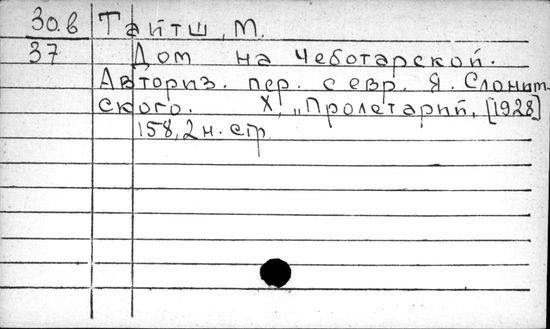 30.в Тайтш, М.
37 Дом на Чеботарской.
Авториз. пер. с евр. Я. Слонит-
ского. Х, „Пролетарий, [1928]
158, 2 н. стр